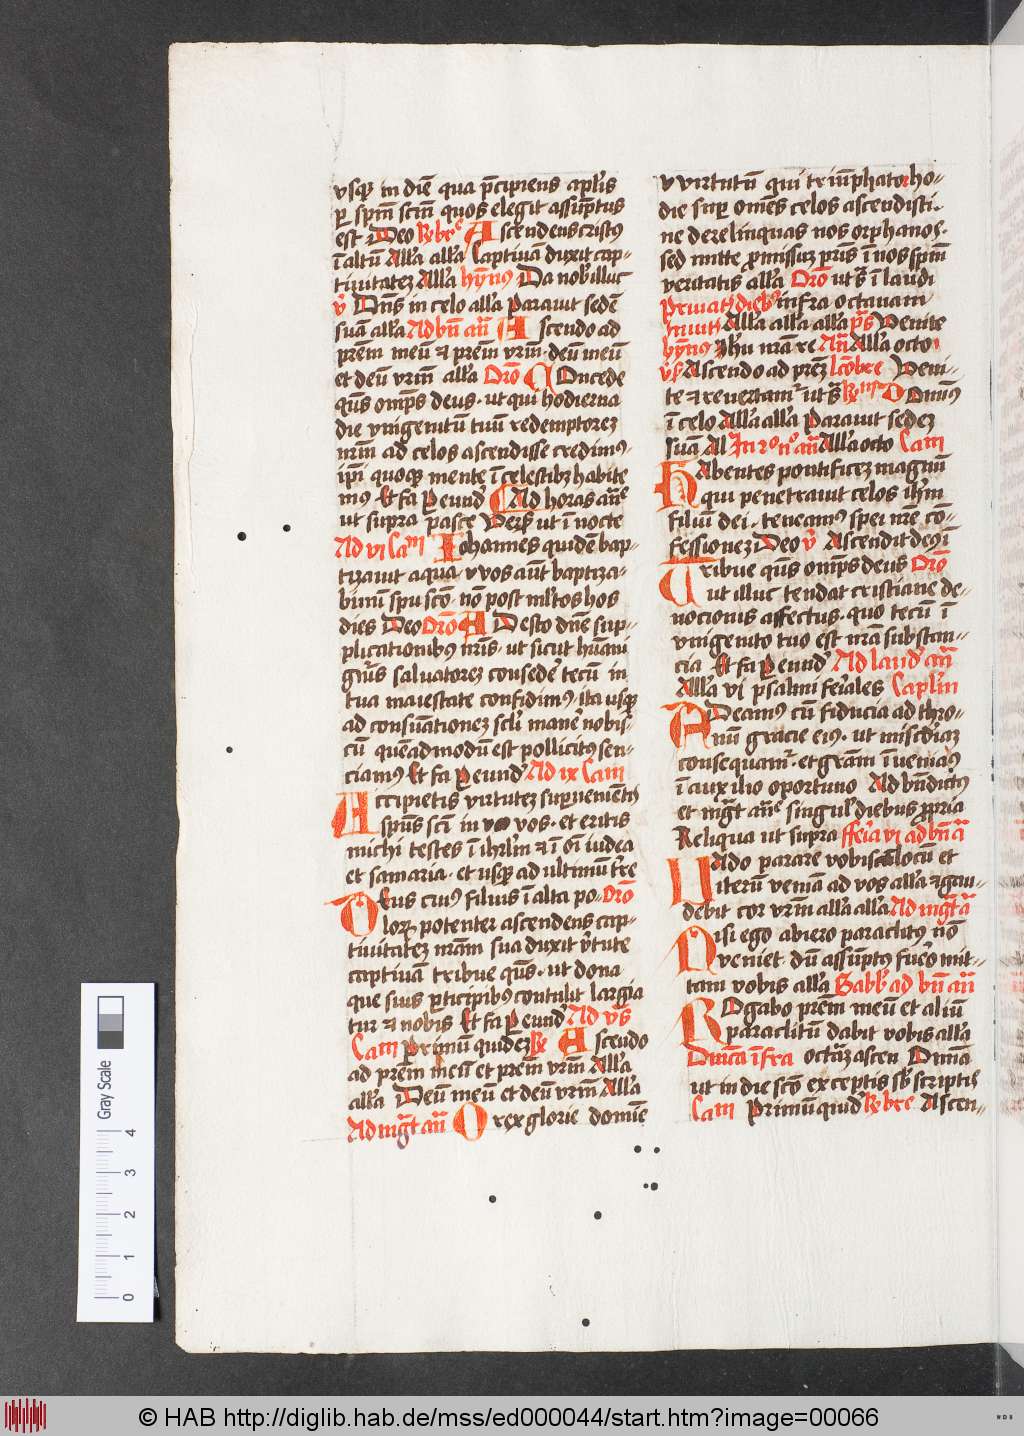 vsqꝫ in diē qua p̄cipiens apl'is
ꝑ spm̄ sctm̄ quos elegit assūptus
est Deo Ry bre Ascendens cristus
ī altū All'a all'a Captiuā duxit cap-
tiuitatez All'a hy̅nus Da nob' illuc
v̓ Dn̄s in celo all'a Parauit sedē
suā all'a Ad bn̄ an̄ Ascendo ad
prēm meū et prēm vr̄m deū meū
et deū vr̄m all'a Orō Concede
qūs omp̄s deus ut qui hodierna
die vnigenitū tuū redemptorez
nr̄m ad celos ascendisse credimus
ip̄i quoqꝫ mente ī celestibꝫ habite
mus Et fa Ꝑ eund' Ad horas an̄e
ut supra pasce Vers' ut ī nocte
Ad vi Cam Iohannes quidē bap-
tizauit aqua vos aūt baptiza-
bimī spu scō nō post ml'tos hos
dies Deo Orō Adesto dn̄e sup-
plicationibus nr̄is ut sicut hūani
gn̄is saluatorez consedē tecū in
tua maiestate confidimus ita usqꝫ
ad consūationez scl'i manē nobis
cū queadmodū est pollicitus sen-
ciamus Et fa Ꝑ eund' Ad ix Cam
Accipietis virtutez superuenientis
spūs scī in vos et eritis
michi testes ī ihrl'm et ī oī iudea
et samaria et usqꝫ ad ultimū tr̄e
Deus cuius filius ī alta po- Orō
lorꝝ potenter ascendens cap-
tiuitatez nr̄am sua duxit v̓tute
captiuā tribue qūs ut dona
que suis ꝑticipibus contulit largia
tur et nobis Et fa Ꝑ eund' Ad vs̄
Cam Primū quidez Ry Ascendo
ad prēm meū et prēm vr̄m All'a
all'a Deū meū et deū vr̄m All'a
Ad mgt̄ an̄ O rex glorie domīe
v virtutū qui triūphator ho-
die supr omēs celos ascendisti
ne derelinquas nos orphanos
sed mitte promissuz pr̄is ī nos spm̄
veritatis all'a Orō ut s' ī laudi
Priuatis diebꝫ infra octauam
Inuit All'a all'a all'a ps̄ Venite
hy̅nus Ihū nr̄a re An̄ All'a octo
vs̓ Ascendo ad prēz lc̄o bre Veni-
te et reuertamr ut s' Ry Dominus
ī celo All'a all'a Parauit sedez
suā Al In an̄ All'a octo Cam
Habentes pontificez magnū
qui penetrauit celos ihm̄
filiū dei teneamus spei nr̄e cō-
fessionez Deo v̓ Ascendit deus ī
Tribue qūs omp̄s deus Orō
ut illuc tendat cristiane de-
uocionis affectus quo tecū ī
vnigenito tuo est nr̄a substan-
cia Et fa Ꝑ eund' Ad laud' an̄
All'a vi psalmi feriales Capl'm
Adeamus cū fiducia ad thro-
nū gracie eius ut misc̄diaz
consequamr et gr̄am īueniamus
ī auxilio oportuno Ad bn̄dictus
et mgt̄ an̄e singul' diebus ꝓpria
Reliqua ut supra fferia vi ad bn̄ ā
Uado parare vobis locū et
iterū veniā ad vos all'a et gau-
debit cor vr̄m all'a all'a Ad mgt̄ ā
Nisi ego abiero paraclitus nō
veniet dū assūptus fuero mit-
tam vobis all'a Sabb' ad bn̄ an̄
Rogabo prēm meū et aliū
paraclitū dabit vobis all'a
Dnica īfra octāz ascen Omīa
ut in die scō exceptis sb'scriptis
Cam Primū quid' Ry bre Ascen-
Gray Scale
0 1 2 3 4
© HAB http://diglib.hab.de/mss/ed000044/start.htm?image=00066